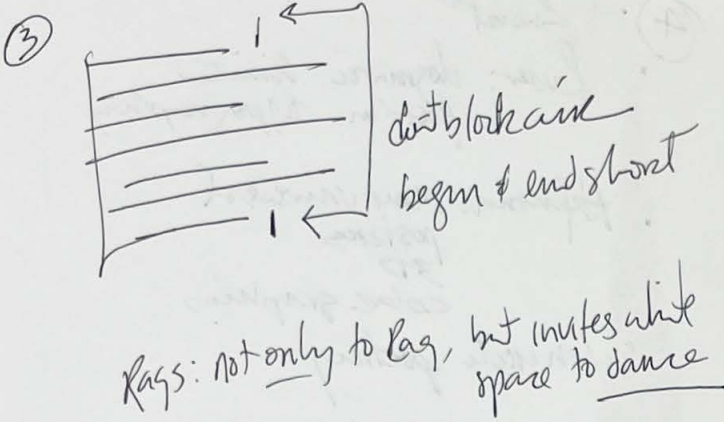 3
don't block
begin & end short
Rags: not only to Rag, but invites white
space to dance